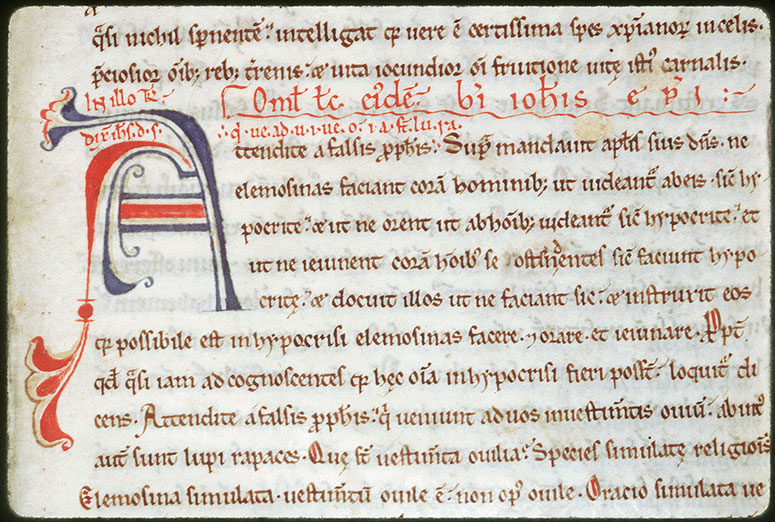 q̄si nichil sp̄nentē. intelligat qp̄ uere ē certissima spes xp̄ianoꝝ in celis.
p̄ciosior oīb; reb; t̄renis. ⁊ uita iocundior oī fruitione uitę isti᷒ carnalis.
In illo t̄e.
Oml̄. lēc. ei᷒dē. bī ioh̄is
dix̄. ihs. d. s.
q̄. ue. ad. u. i. ue. o. i. a. sēt. lu. ra.
Attendite a falsis ꝓph̄is. Sup̄ mandauit apl̄is suis dn̄s. ne
elemosinas faciant corā hominib; ut uideant᷑ ab eis. sic̄ hy
pocrite. ⁊ ut ne orent ut ab hoīb; uideant᷑ sic̄ hypocrite. et
ut ne ieiunent corā hoīb᷒ se ostendentes sic̄ faciunt hypo
critę. ⁊ docuit illos ut ne faciant sic. ⁊ instruxit eos
qp̄ possibile est in hypocrisi elemosinas facere. ⁊ orare. et ieiunare. Ꝓpt̄
qd̄ q̄si iam ad cognoscentes qp̄ hęc oīa in hypocrisi fieri poss̄t. loquit᷑ di
cens. Attendite a falsis ꝓph̄is. q̄ ueniunt ad uos in uestim̄tis ouiū. ab int᷒
aut̄ sunt lupi rapaces. Quę st̄ uestim̄ta ouilia? Species simulatę religiōis
Elemosina simulata. uestim̄tū ouile ē. non op᷒ ouile. Oracio simulata ue